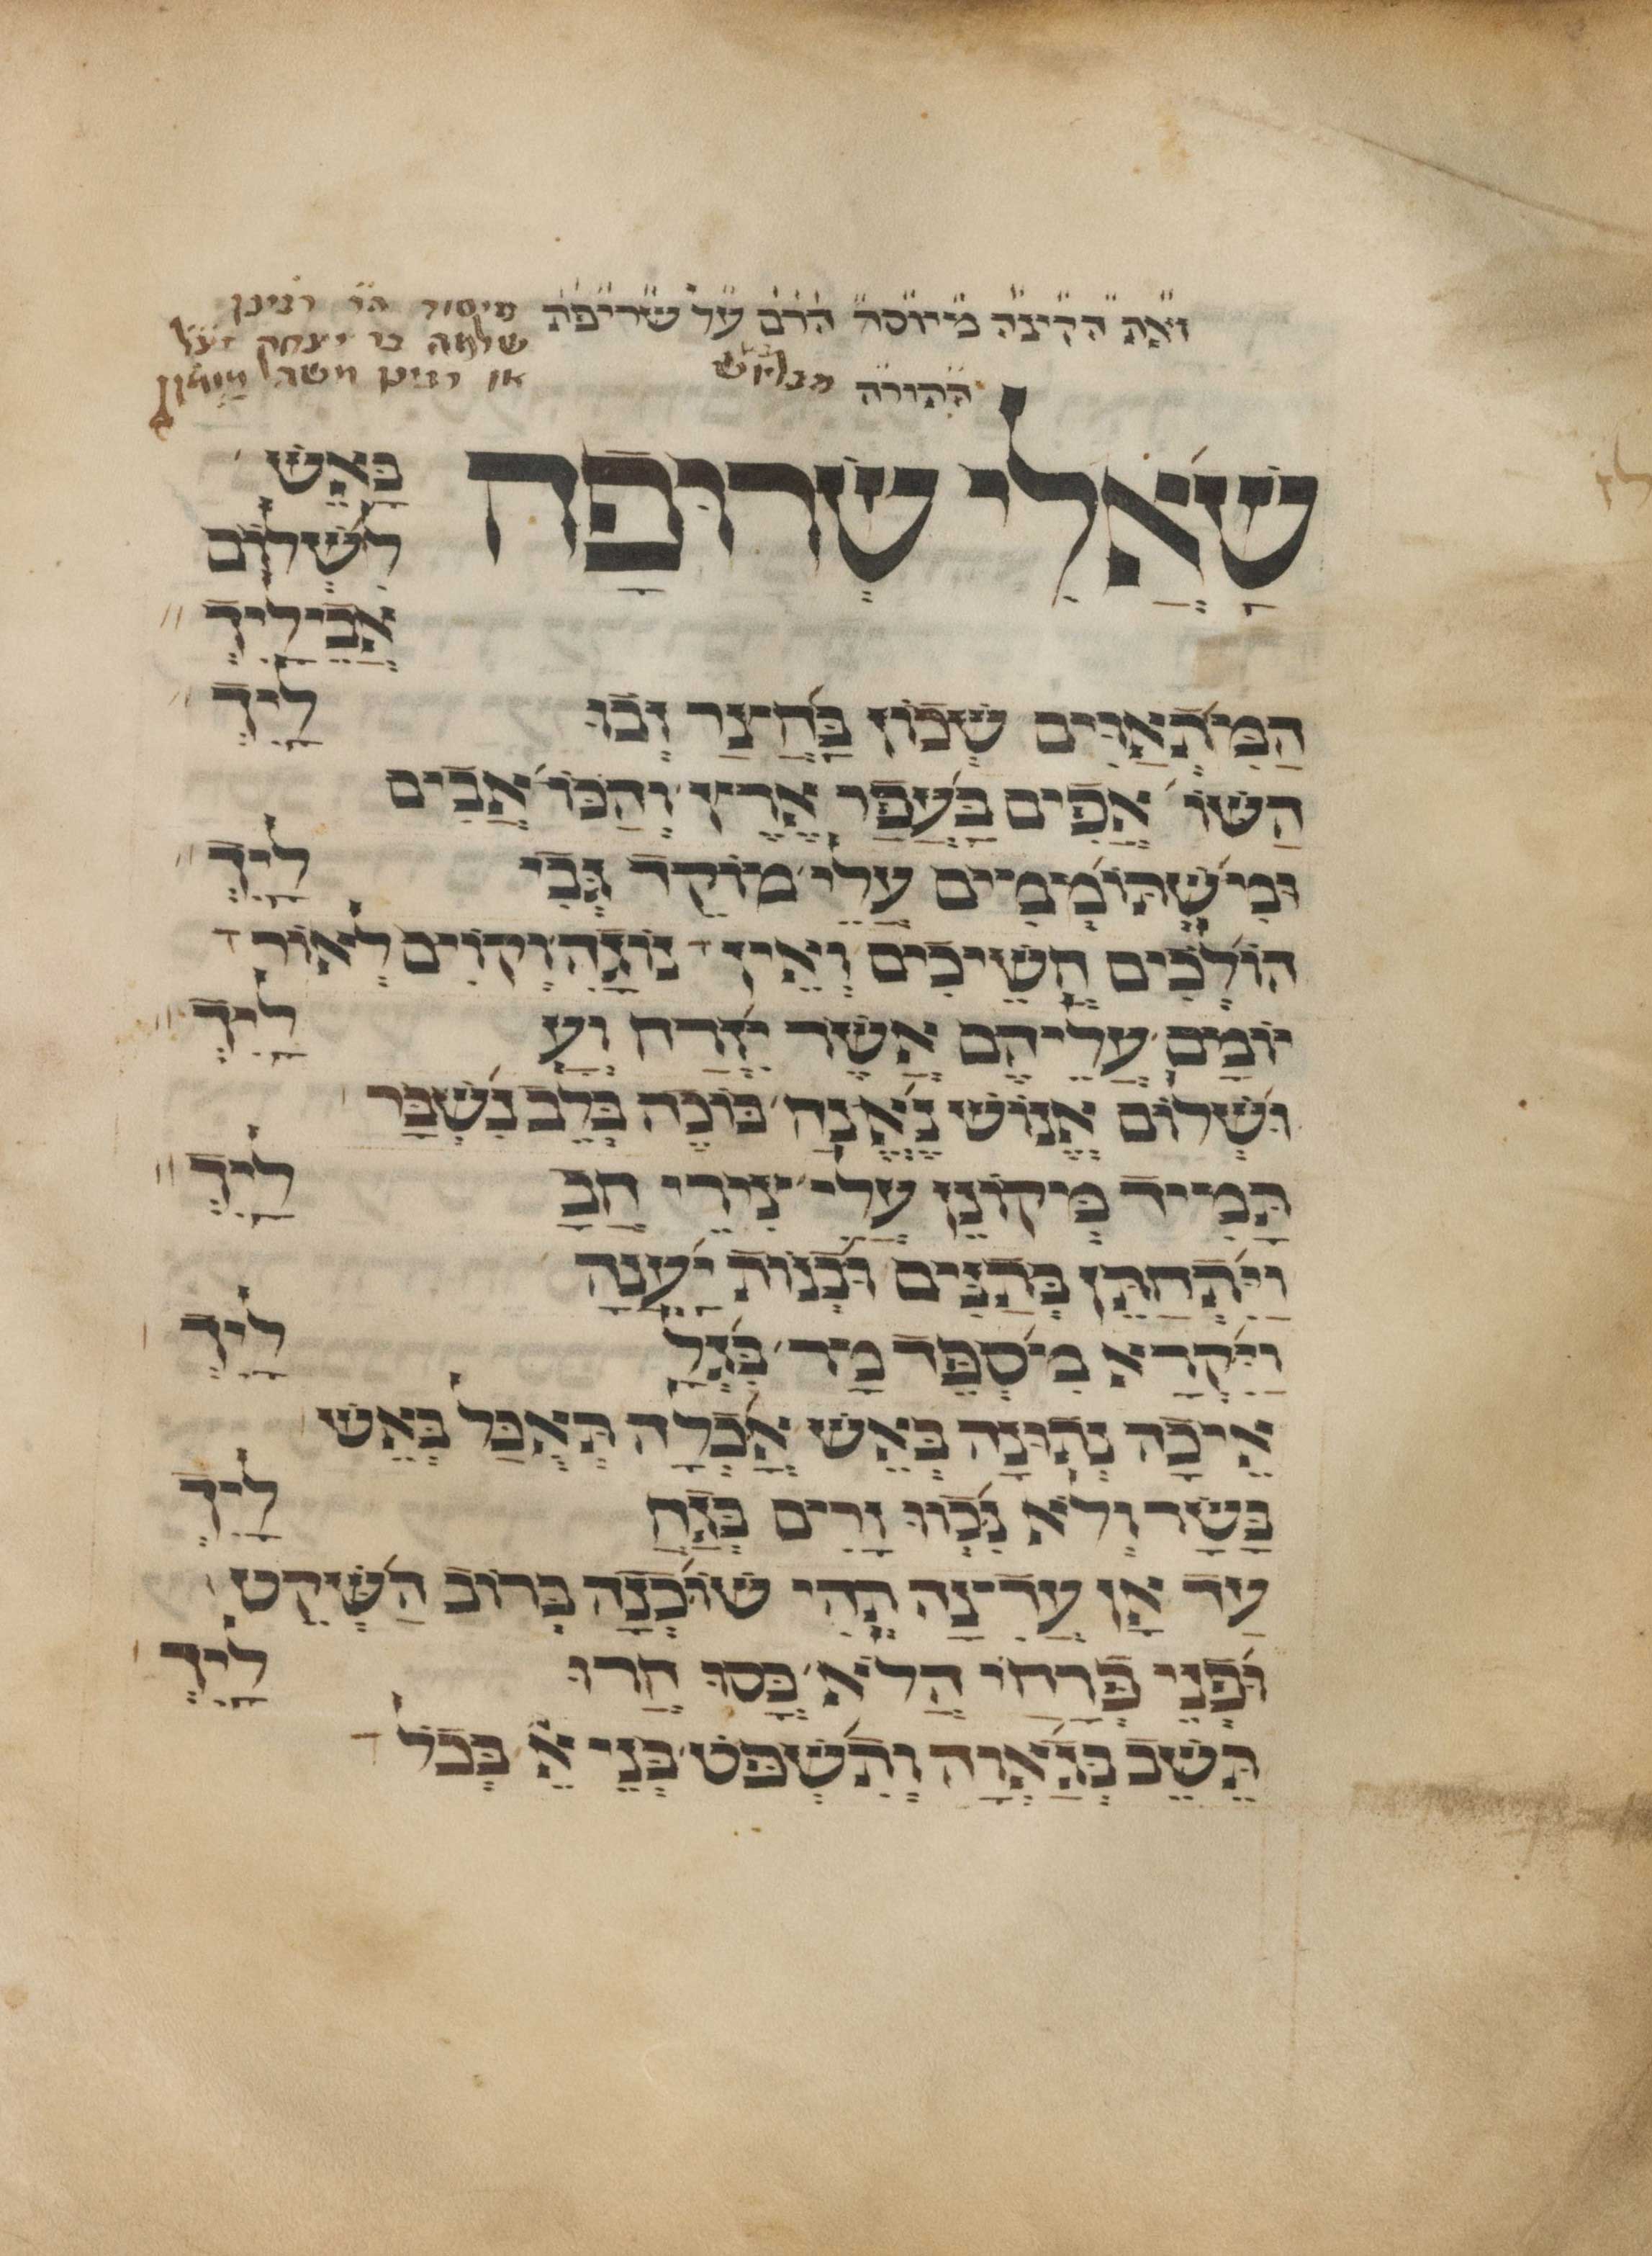 זאת הקינה מיוסד הרם על שריפת מיסוד הר רבינו
שלמה בר יצחק זצל
התורה או רבינו
שאלי שרופה באש
לשלום
אביליך
המתאוים שכון בחצר זבו ליך
השואפים בעפר ארץ והכואבים
ומשתוממים עלי מוקד גוי ליך
הולכים חשיכים ואין נוגה וקוים לאור
יומם עליהם אשר יזרח וע ליך
ושלום אנוש נאנח בוכה בלב נשבר
תמיד מקונן עלי צירי חב ליך
ויתחנן כתנים ובנות יענה
ויקרא מיספד מר בגל ליך
איכה נתונה באש אכלה תאכל באש
בשר ולא נכוו זרים בגח ליך
עד אן עדינה תהי שוכנה ברוב השקט
ופני פרחי הלא כסו חרו ליך
תשב בגאוה ותשפט בני א בכל